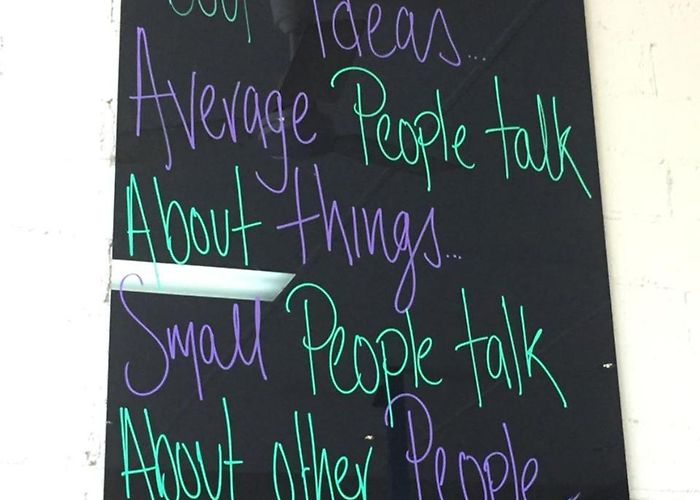 Ideas...
Average People talk
About things...
Small People talk
About other People